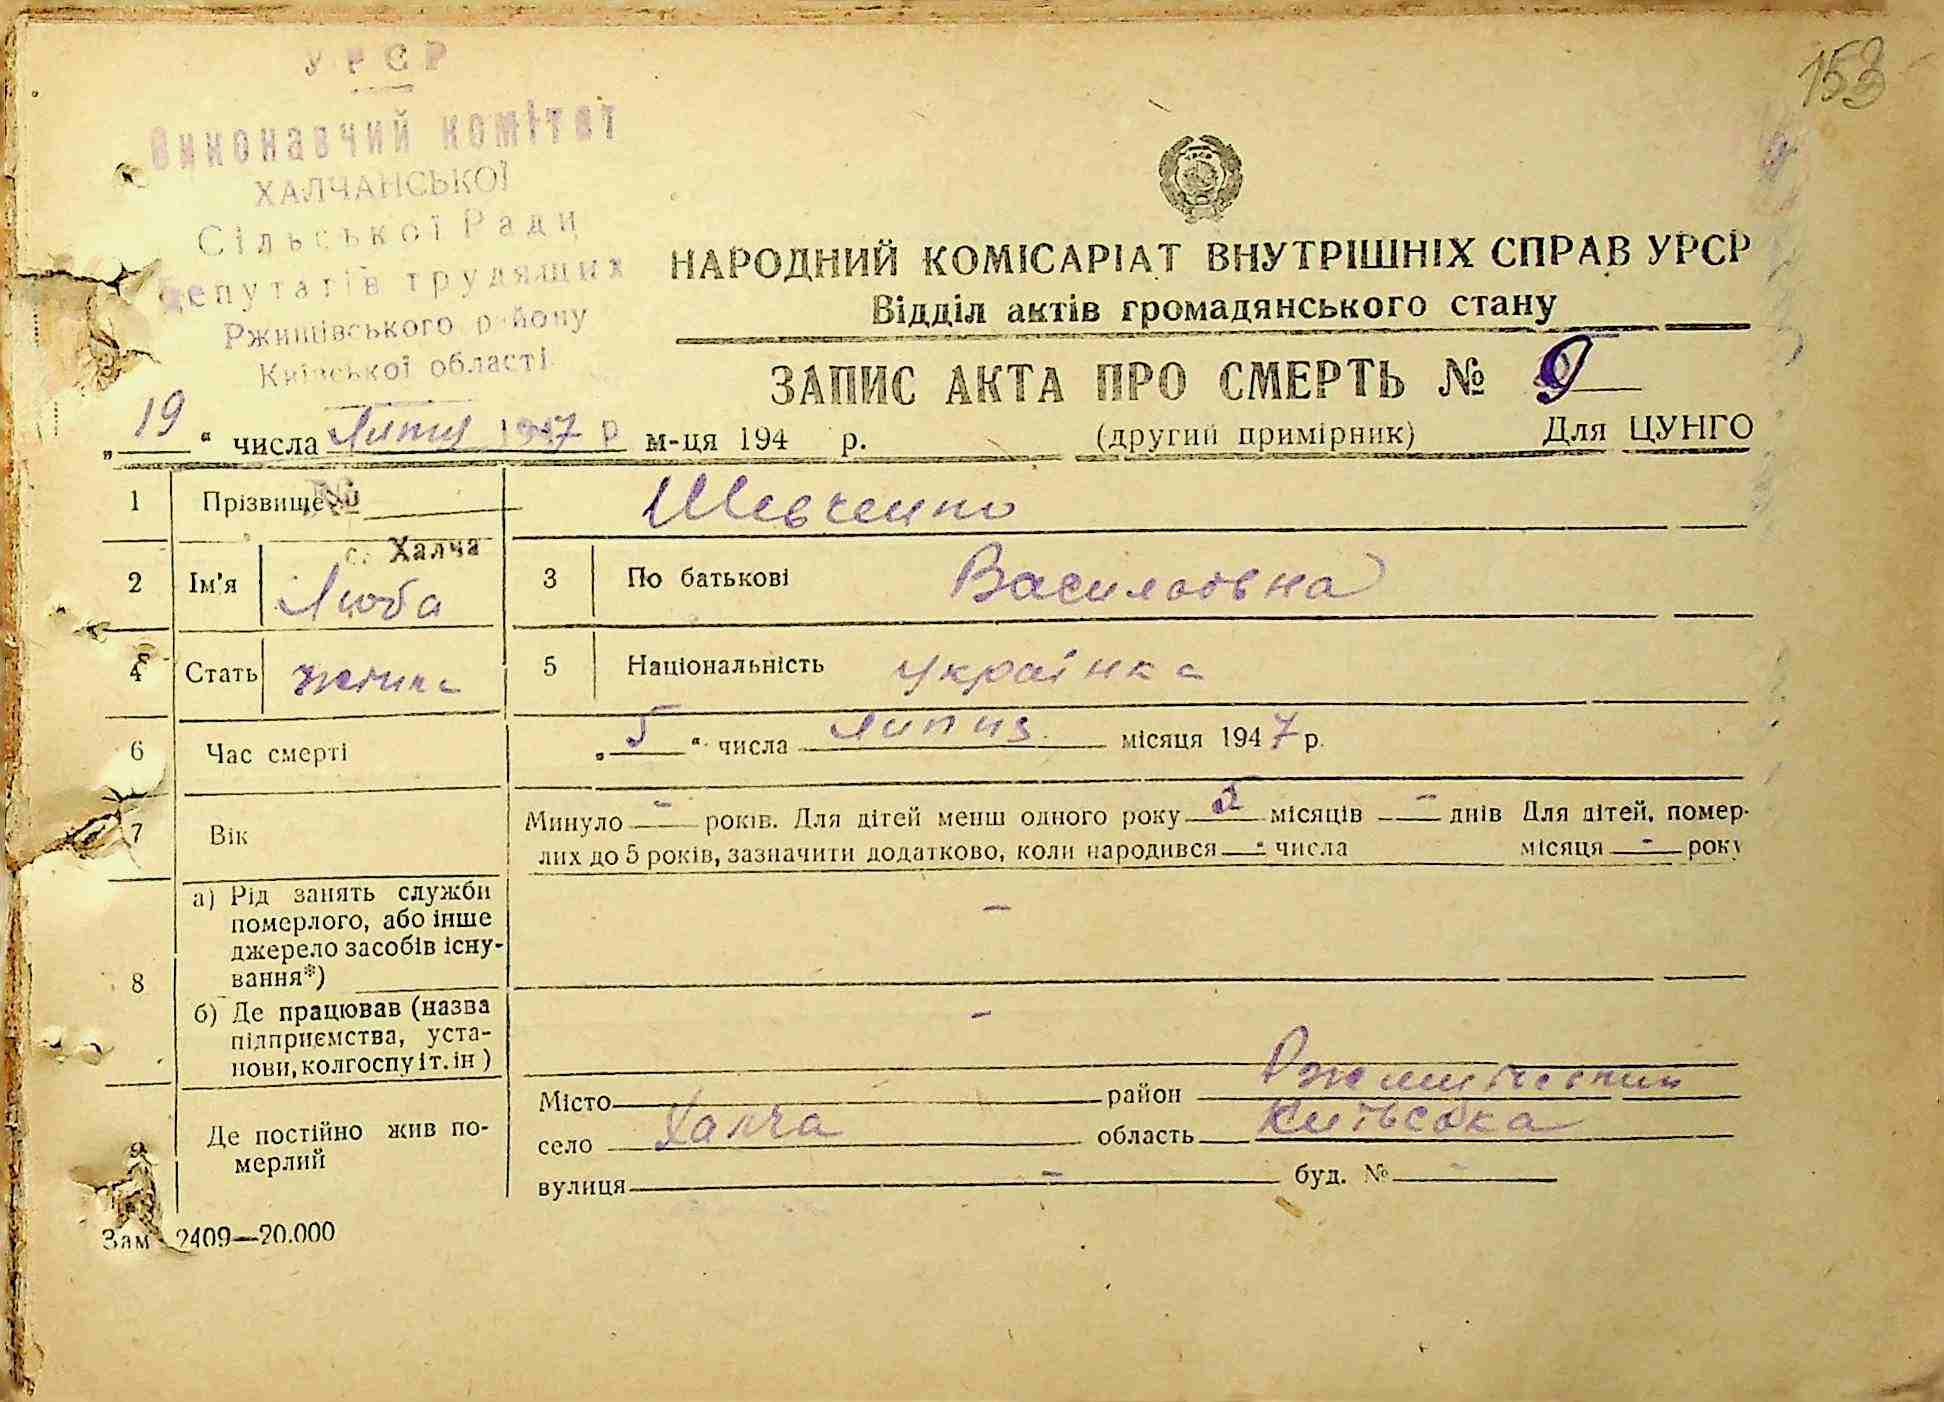 153
УРСР
Виконавчий комітет
ХАЛЧАНСЬКОЇ
Сільської Ради
депутатів трудящих
Ржищівського району
Київської області
НАРОДНИЙ КОМІСАРІАТ ВНУТРІШНІХ СПРАВ УРСР
Відділ актів громадянського стану
ЗАПИС АКТА ПРО СМЕРТЬ № 9
„19“ числа Липня 1947 р м-ця 194 р. (другий примірник) Для ЦУНГО
1 Прізвище Шевченко
№
с. Халча
2 Ім'я Люба 3 По батькові Василовна
4 Стать 5 Національність українка
6 Час смерті „5“ числа липня місяця 1947 р.
7 Вік Минуло — років. Для дітей менш одного року 2 місяців — днів Для дітей, помер-
лих до 5 років, зазначити додатково, коли народився - числа місяця - року
8 а) Рід занять служби
померлого, або інше
джерело засобів існу-
вання*) -
б) Де працював (назва
підприємства, уста-
нови, колгоспу і т. ін) -
Де постійно жив по-
мерлий
Місто район Ржищівский
село Халча область Київська
вулиця - буд. № -
Зам 2409—20.000